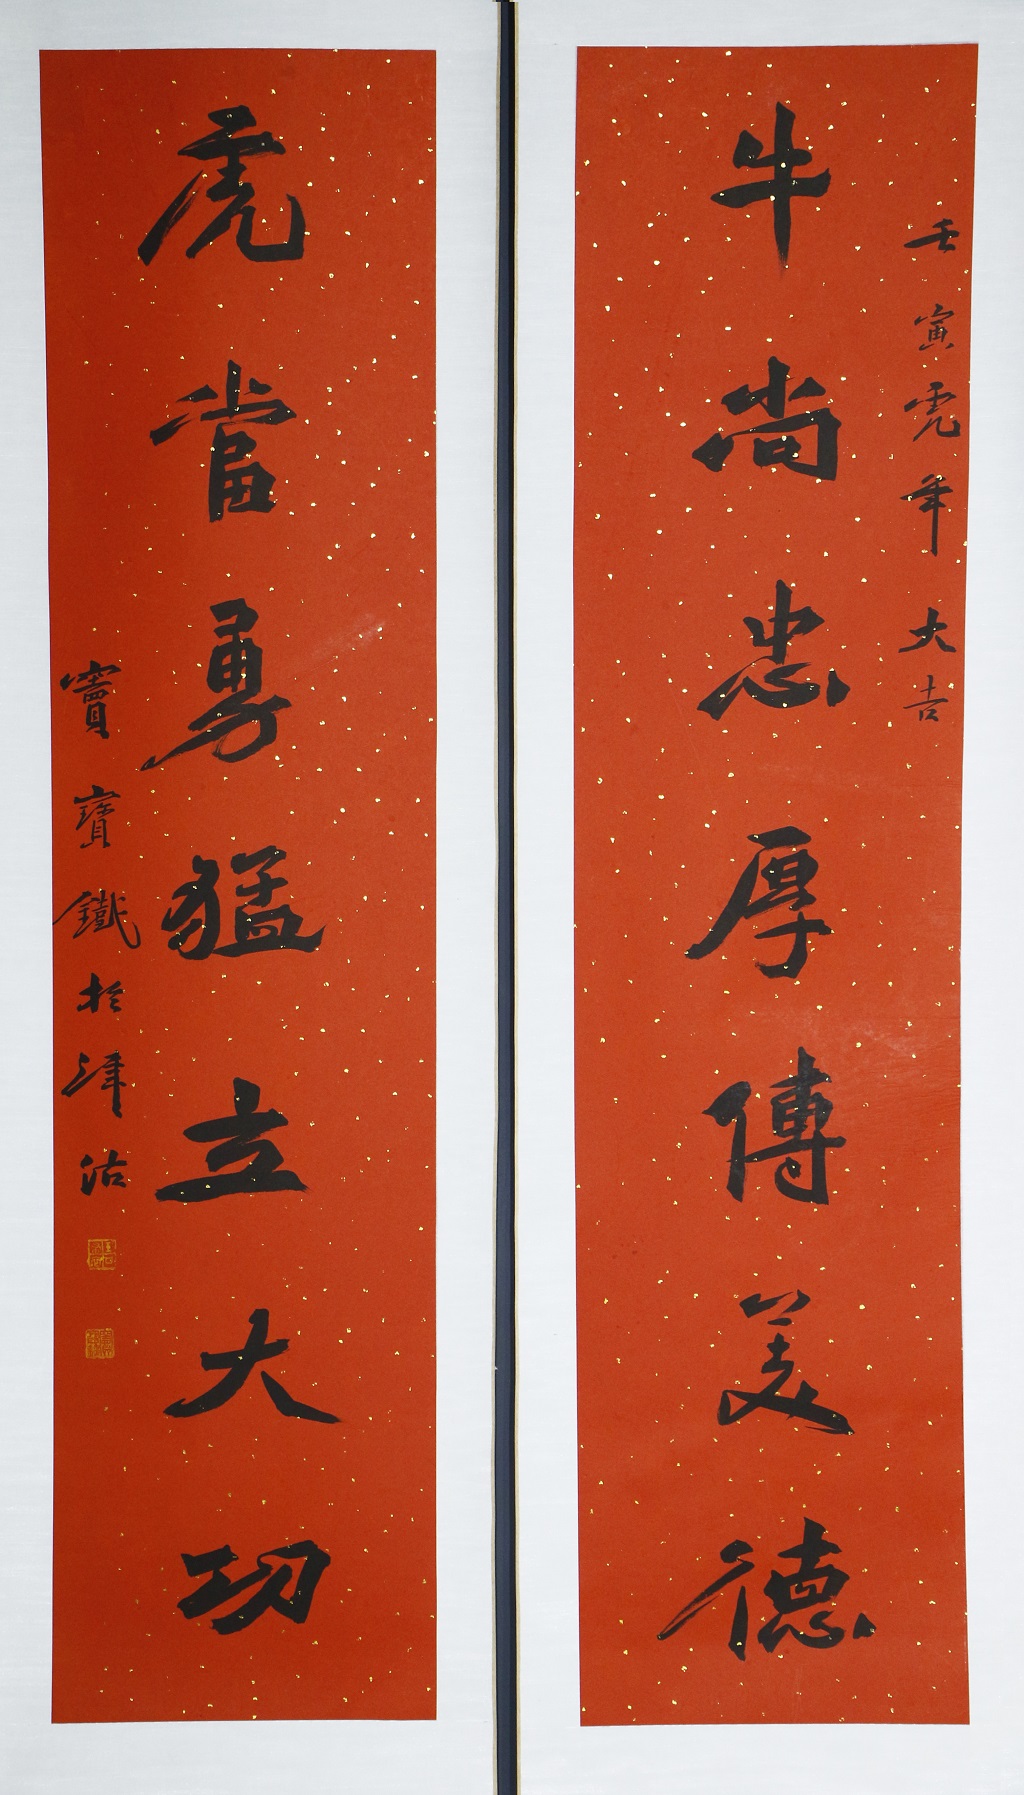 壬寅虎年大吉
牛尚忠厚傳美德
虎當勇猛立大功
竇寶鐵於津沽